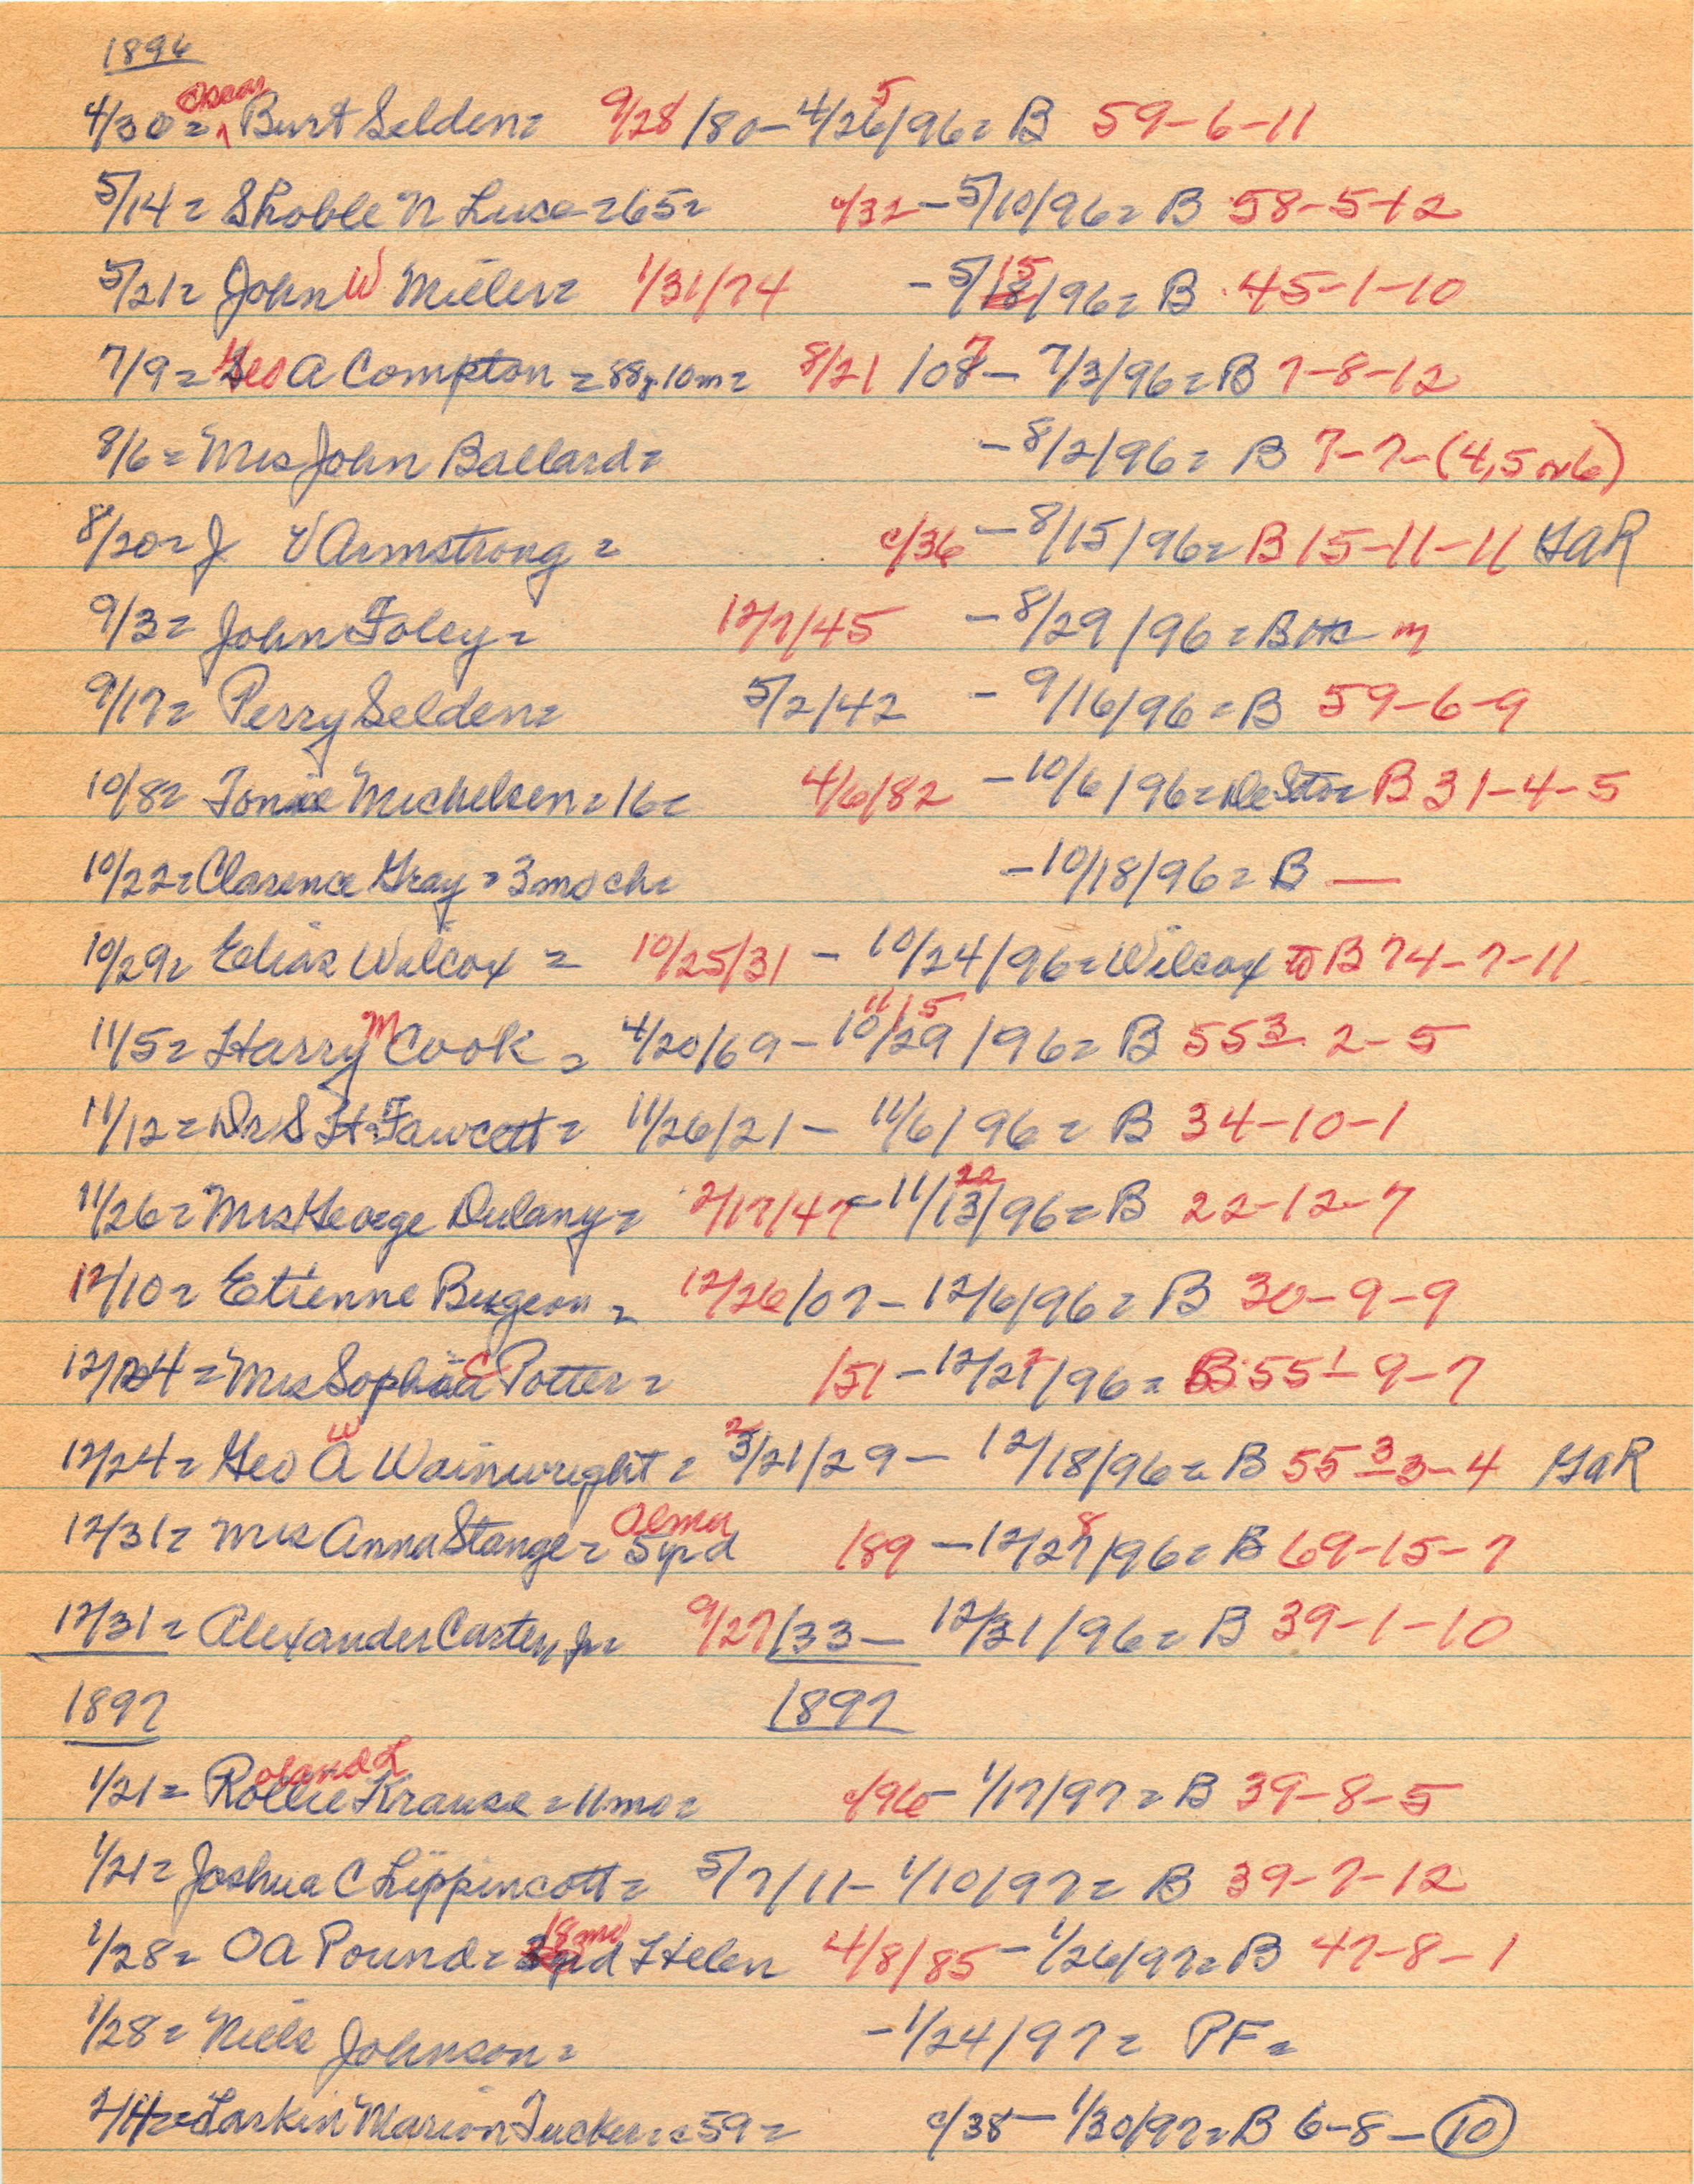 1896
4/30= Oscar Burt Selden= 9/28/80-4/26 5/96= B 59-6-11
5/14= Shoble N Luse=65= c/32-5/10/96= B 58-5-12
5/21= John W Miller= 1/31/74 -5/18 15/96= B 45-1-10
7/9= Geo A Compton=88y10m= 8/21/08 7- 7/3/96= B 7-8-12
8/6= Mrs John Ballard= -8/2/96= B 7-7-(4,5 or 6)
8/20= J V Armstrong= c/36 -8/15/96= B 15-11-11 GAR
9/3= John Foley= 12/7/45 -8/29/96= B m
9/17= Perry Selden= 5/2/42 - 9/16/96= B 59-6-9
10/8= Michelsen=16= 4/6/82 -10/6/96=DeSoto= B 31-4-5
10/22=Clarence Gray=3mo ch= -10/18/96= B —
10/29= Elias Wilcox = 10/25/31 - 10/24/96=Wilcox to B 74-7-11
11/5= Harry M Cook = 4/20/69-10/29 11/5/96= B 55 3- 2-5
11/12=Dr S H Fawcett= 11/26/21- 11/6/96= B 34-10-1
11/26= Mrs George Dulany= 2/17/47-11/13 22/96= B 22-12-7
12/10= Etienne Bugeon= 12/26/07-12/6/96= B 30-9-9
12/24=Mrs Sophia C Potter= /51 -12/27 2/96= B 55 1- 9-7
12/24= Geo A W Wainwright= 3 2/21/29- 12/18/96= B 55 3-3-4 GAR
12/31= Mrs Anna Stange= Alma 5yr d /89 -12/27 8/96= B 69-15-7
12/31= Alexander Carter, Jr= 9/27/33- 12/31/96= B 39-1-10
1897 1897
1/21= Rollie oland L Krause=11mo= c/96- 1/17/97= B 39-8-5
1/21= Joshua C Lippincott= 5/7/11- 1/10/97= B 39-7-12
1/28= OA Pound= 18mo d Helen 4/8/85-1/26/97= B 47-8-1
1/28= Niels Johnson= -1/24/97= PF=
2/4=Larkin Marion Tucker=59= c/38- 1/30/97= B 6-8-10